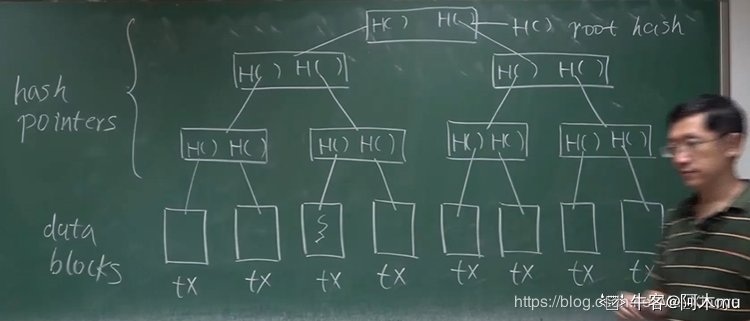 H( ) H( ) H( ) root hash
H( ) H( ) H( ) H( )
hash
pointers
H( ) H( ) H( ) H( ) H( ) H( ) H( ) H( )
data
blocks
tx tx tx tx tx tx tx tx
https://blog.c
牛客@阿木mu